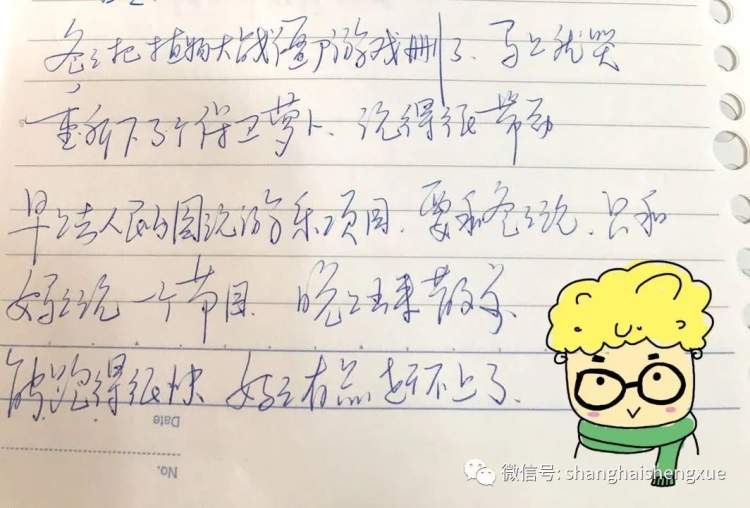 爸爸把植物大战僵尸游戏删了、马上就哭
重新下了个保卫萝卜、玩得很带劲
早上去人民公园玩游乐项目、要和爸爸玩、只和
妈妈玩一个节目、晚上出来散步、
跑得很快 妈妈有点赶不上了、
Date
No.
微信号: shanghaishengxue